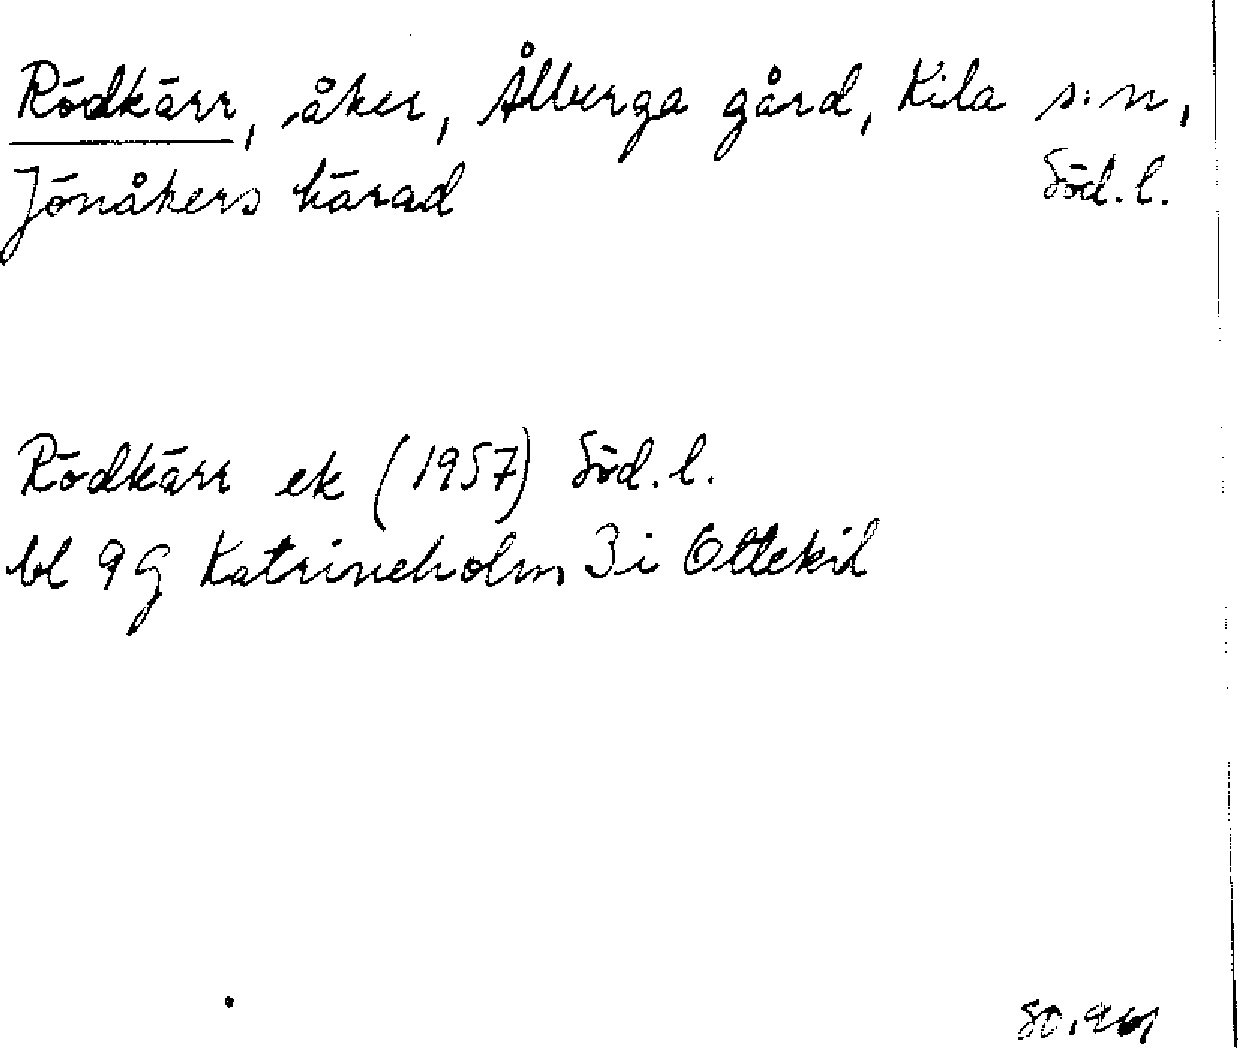 Rödkärr, åker, Ålberga gård, Kila s:n,
Jönåkers härad Söd.l.
Rödkärr ek (1957) Söd.l.
bl 9G Katrineholm 3i Ottekil